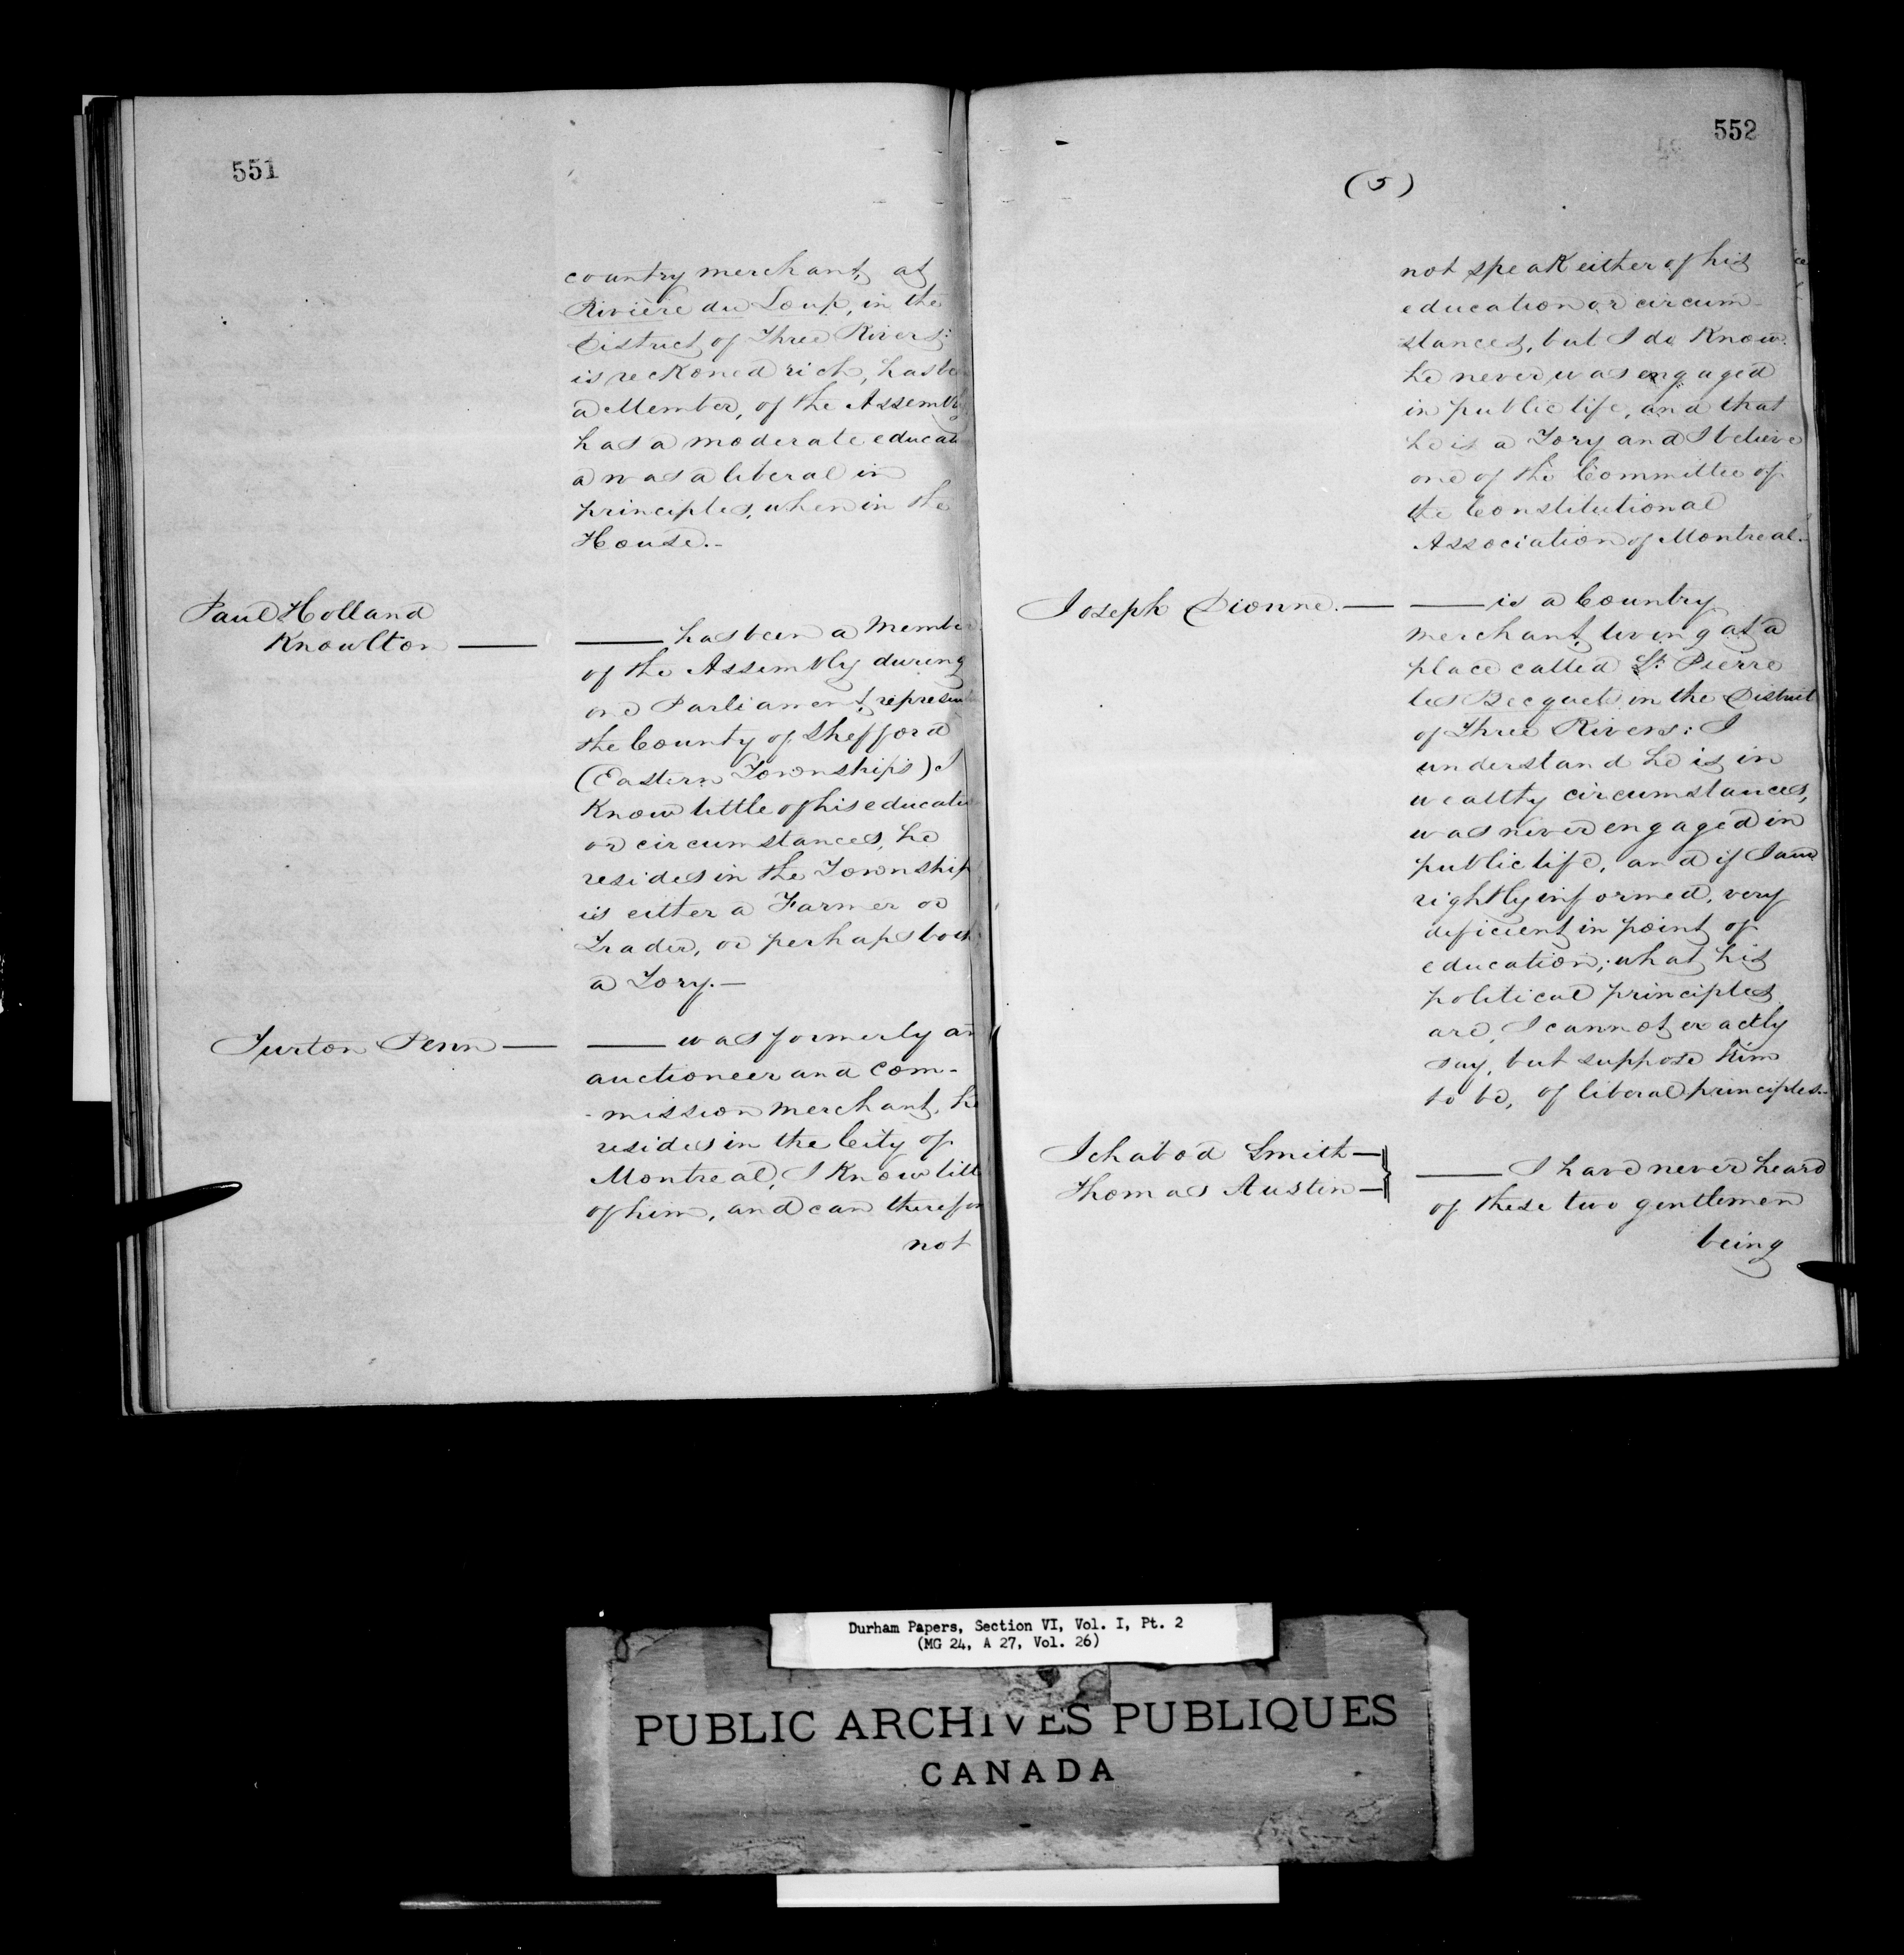 551
country merchant, at
Rivière du Loup, in the
District of Three Rivers:
is reckoned rich, has be
a Member, of the Assembly
has a moderate educati
a was a liberal in
principles, when in the
House.-
Paul Holland
Knowlton —
— has been a Member
of the Assembly during
one Parliament, represent
the County of Shefford
(Eastern Townships) I
Know little of his educatio
or circumstances, he
resides in the Township
is either a Farmer or
Trader, or perhaps both
a Tory.—
Turton Penn —
— was formerly an
auctioneer and com-
-mission merchant, he
resides in the City of
Montreal, I Know litt
of him, and can therefor
not
552
(5)
not speak either of his
education or circum-
stances, but I do Know
he never was engaged
in public life, and that
he is a Tory and I believe
one of the Committee of
the Constitutional
Association of Montreal.-
Joseph Dionne. —
— is a Country
merchant, living at a
place called St. Pierre
les Becquets in the District
of Three Rivers: I
understand he is in
wealthy circumstances,
was never engaged in
public life, and if I am
rightly informed, very
deficient in point of
education; what his
political principles
are, I cannot exactly
say, but suppose him
to be, of liberal principles.-
Ichabod Smith —
Thomas Austin —
— I have never heard
of these two gentlemen
being
Durham Papers, Section VI, Vol. I, Pt. 2
(MG 24, A 27, Vol. 26)
PUBLIC ARCHIVES PUBLIQUES
CANADA